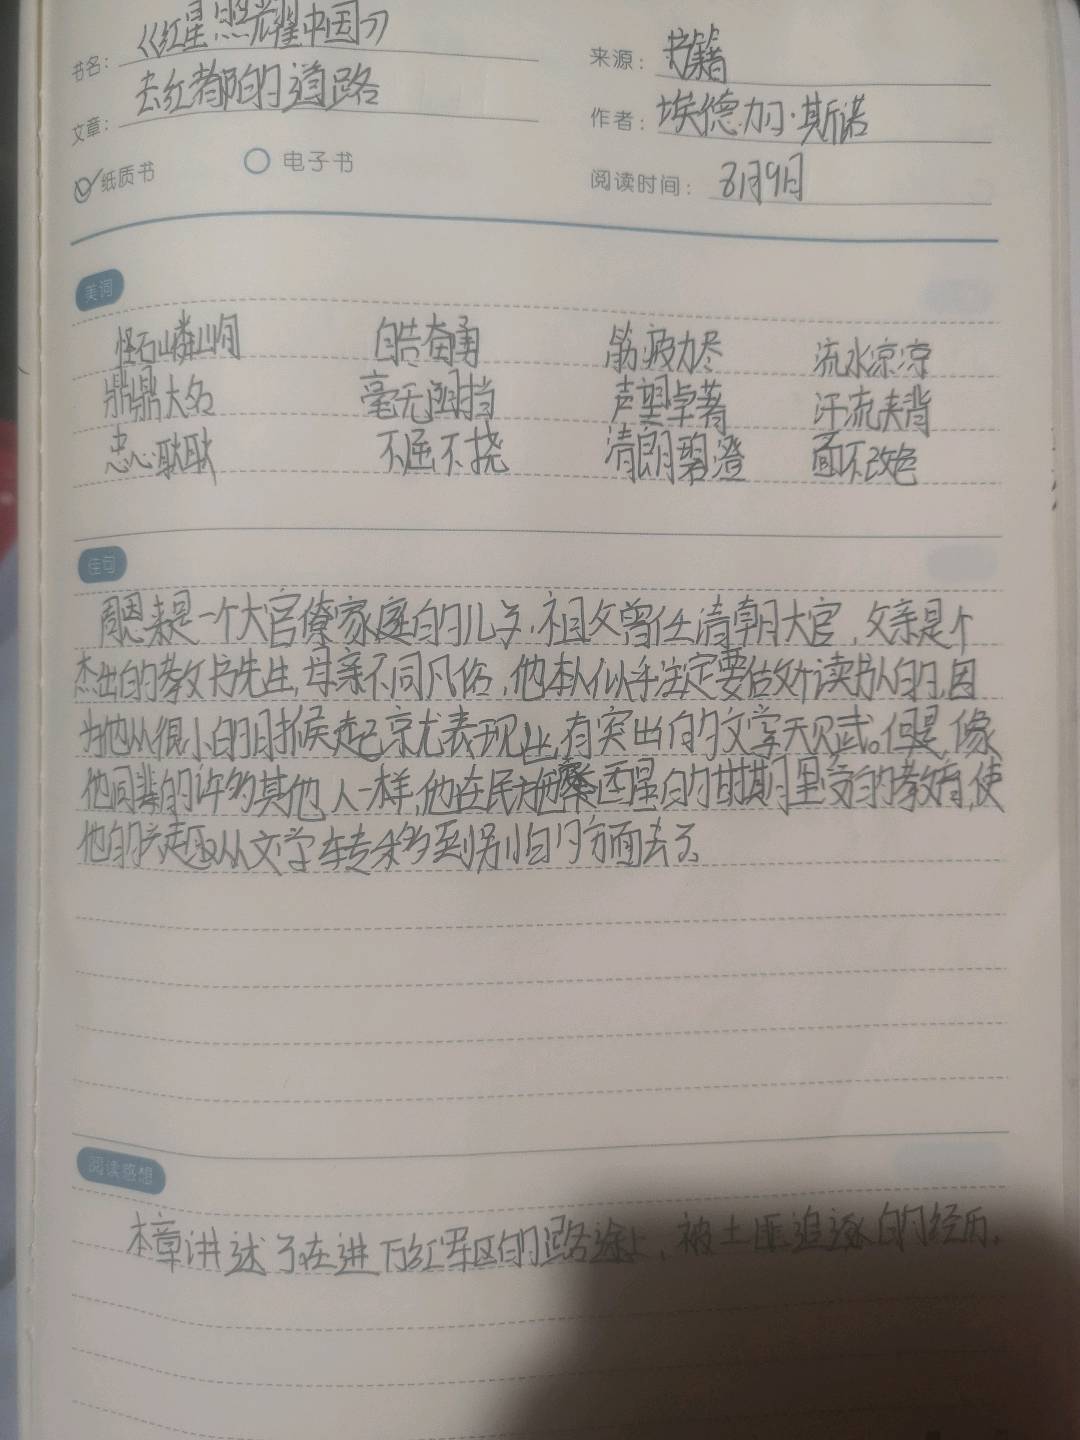 书名：《红星照耀中国》
来源：书籍
文章：去红都的道路
作者：埃德加·斯诺
纸质书 电子书
阅读时间：8月9日
美词
怪石嶙峋 自告奋勇 筋疲力尽 流水凉凉
鼎鼎大名 毫无阻挡 声望卓著 汗流夹背
忠心耿耿 不屈不挠 清朗碧澄 面不改色
佳句
周恩来是一个大官僚家庭的儿子，祖父曾任清朝大官，父亲是个
杰出的教书先生，母亲不同凡俗，他本人似乎注定要做个读书人的，因
为他从很小的时候起就表现出有突出的文学天赋。但是，像
他同辈的许多其他人一样，他在民族觉醒的时期里受的教育，使
他的兴趣从文学转移到别的方面去了。
阅读感想
本章讲述了在进入红军区的路途上，被土匪追逐的经历。